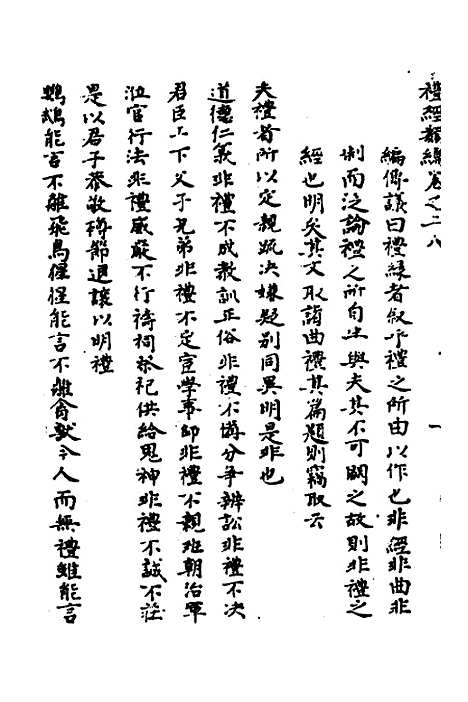 禮經類編卷之二八
編傳議曰禮緣者叙乎禮之所由以作也非經非曲非
制而泛論禮之所自出與夫其不可闕之故則非禮之
經也明矣其文取諸曲禮其篇題則竊取云
夫禮者所以定親疏决嫌疑别同異明是非也
道德仁義非禮不成教訓正俗非禮不備分争辨訟非禮不决
君臣上下父子兄弟非禮不定宦學事師非禮不親班朝治軍
涖官行法非禮威嚴不行禱祠祭祀供給鬼神非禮不誠不莊
是以君子恭敬撙節退讓以明禮
鸚鵡能言不離飛鳥猩猩能言不離禽獸今人而無禮雖能言